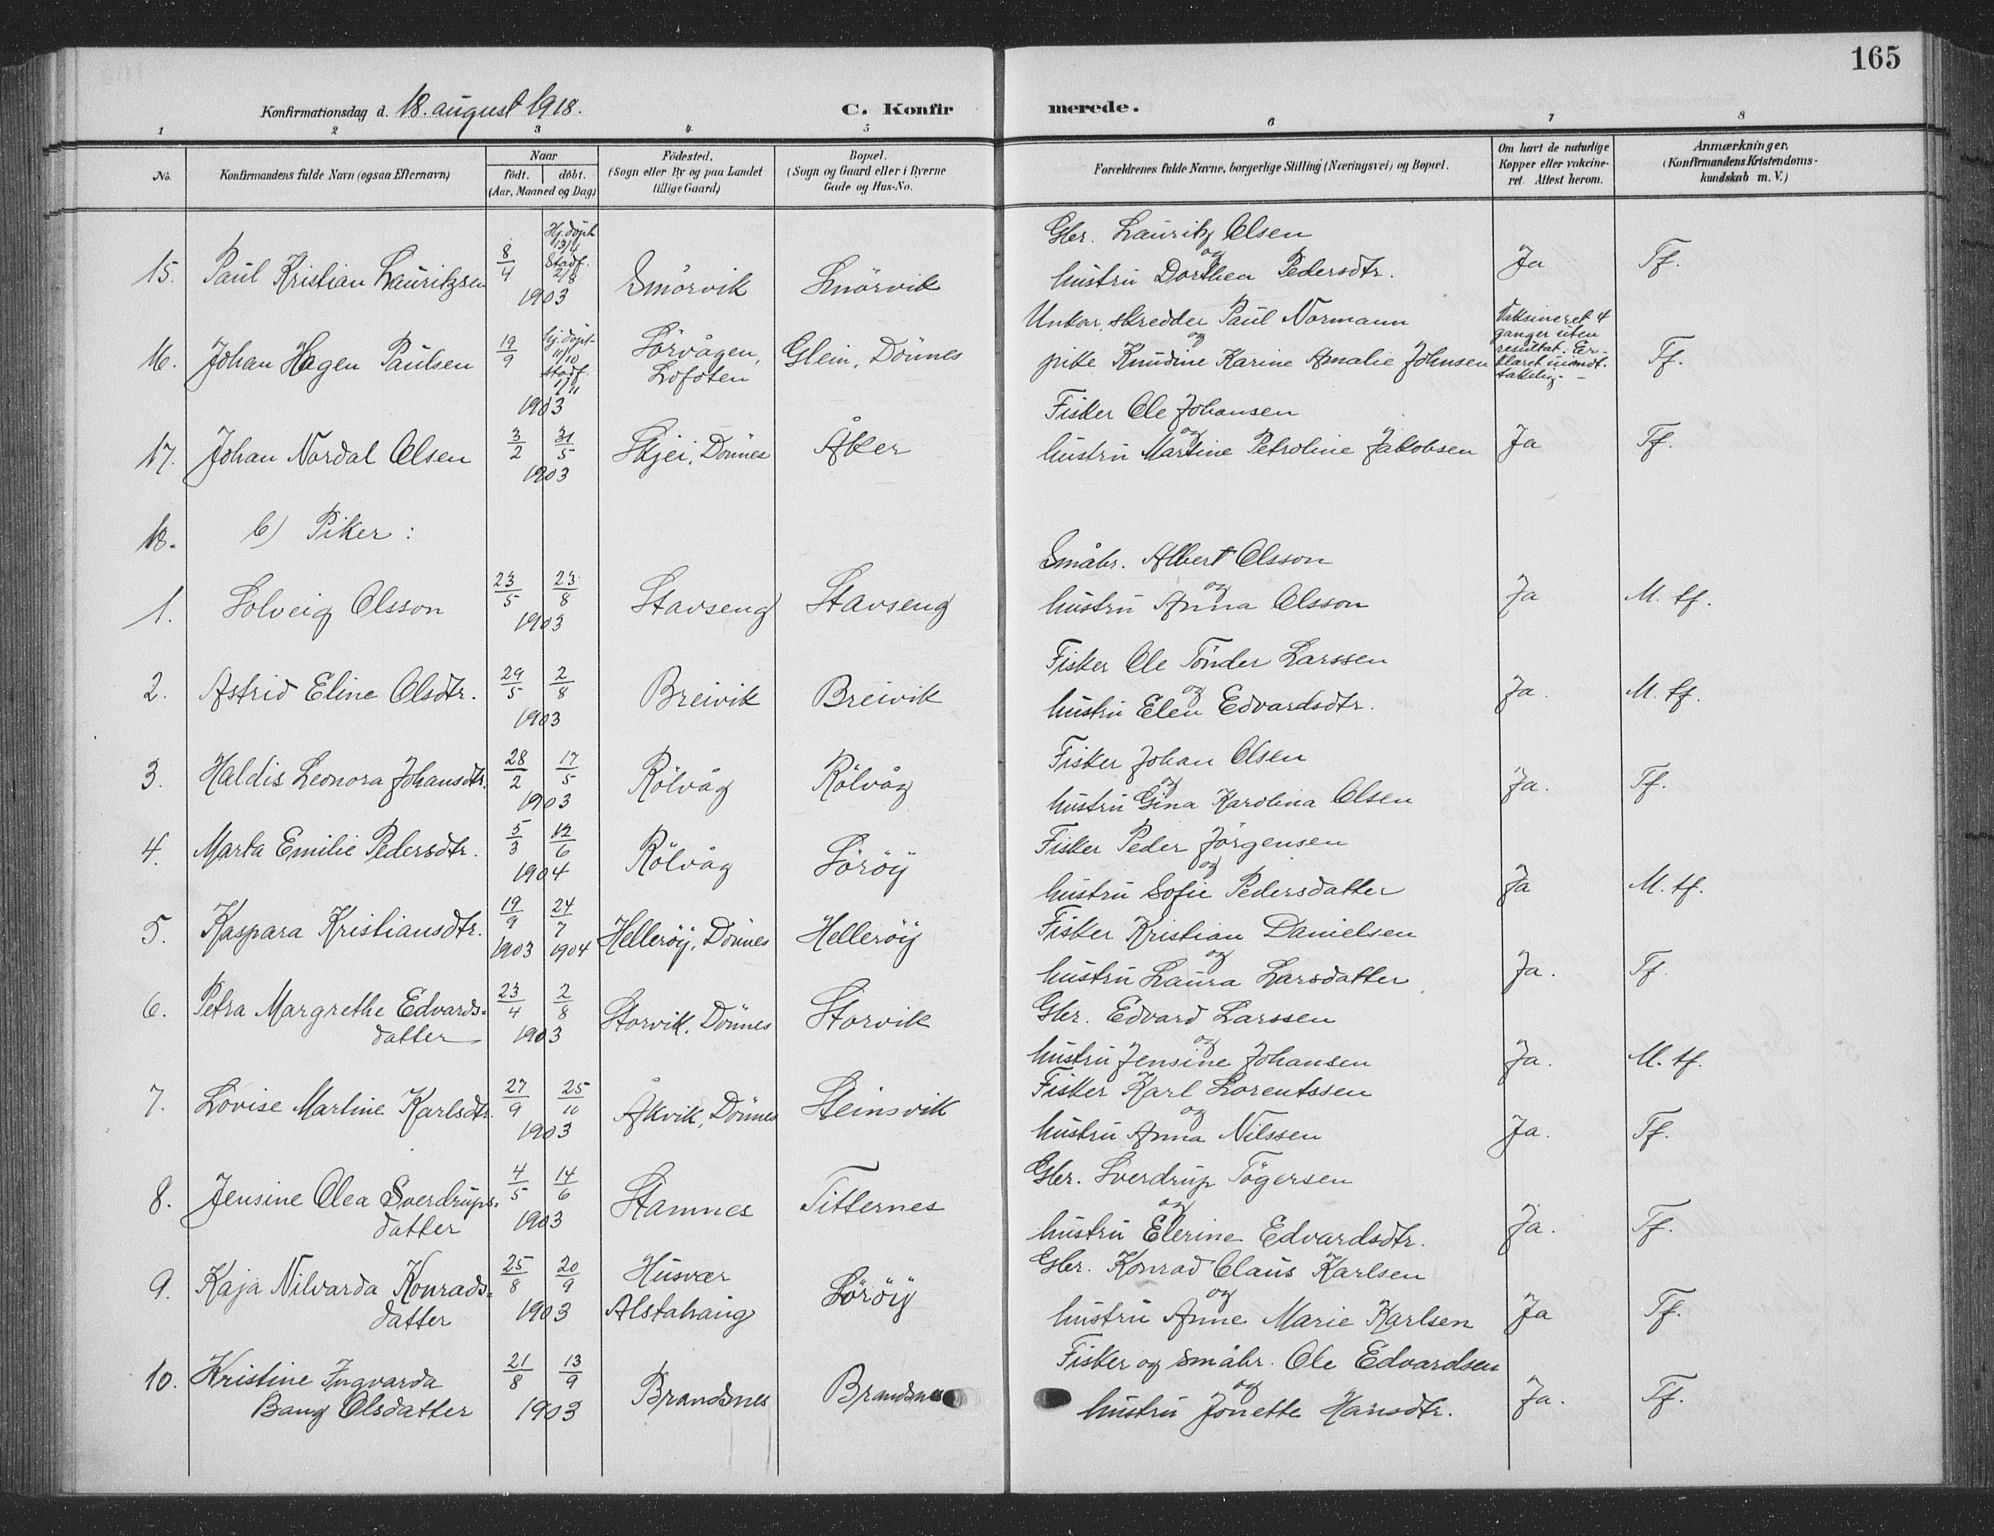 165
Konfirmationsdag d. 18. august 1918.
C. Konfir merede.
1 2 3 4 5 6 7 8
No.
Konfirmandens fulde Navn (ogsaa Efternavn)
Naar
födt. döbt.
(Aar, Maaned og Dag)
Födested.
(Sogn eller By og paa Landet
tillige Gaard)
Bopæl.
(Sogn og Gaard eller i Byerne
Gade og Hus-No.
Forældrenes fulde Navne, borgerlige Stilling (Næringsvei) og Bopæl.
Om havt de naturlige
Kopper eller vakcine-
ret. Attest herom.
Anmærkninger.
(Konfirmandens Kristendoms-
kundskab m. V.)
15. Paul Kristian Lauritzsen 8/4 Hj.döpt 13/4 Stadf. 2/8 1903 Smörvik Smörvik
Gbr. Lauritz Olsen
og
hustru Dorthea Pedersdtr. Ja Tf.
16. Johan Hagen Paulsen 19/9 Hj.döpt 11/10 Stadf. 1/11 1903 Sörvågen, Lofoten Glein, Dönnes
Unkar, skredder Paul Normann
og
pike Knudine Karine Amalie Johnsen
Vaksineret 4
ganger uten
resultat. Er-
klæret uimot-
takelig. Tf.
17. Johan Nordal Olsen 3/2 31/5 1903 Skjei, Dönnes Åker
Fisker Ole Johansen
og
hustru Martine Petroline Jakobsen Ja Tf.
18. b) Piker:
1. Solveig Olsson 23/5 23/8 1903 Stavseng Stavseng
Småbr. Albert Olsson
og
hustru Anna Olsson Ja M. tf.
2. Astrid Eline Olsdtr. 29/5 2/8 1903 Breivik Breivik
Fisker Ole Tönder Larssen
og
hustru Elen Edvardsdtr. Ja. M. tf.
3. Haldis Leonora Johansdtr. 28/2 17/5 1903 Rölvåg Rölvåg
Fisker Johan Olsen
og
hustru Gina Karolina Olsen Ja. Tf.
4. Marta Emilie Pedersdtr. 5/3 12/6 1904 Rölvåg Söröy
Fisker Peder Jörgensen
og
hustru Sofie Pedersdatter Ja M. tf.
5. Kaspara Kristiansdtr. 19/9 1903 24/7 1904 Helleröy, Dönnes Helleröy
Fisker Kristian Danielsen
og
hustru Laura Larsdatter Ja. Tf.
6. Petra Margrethe Edvards-
datter 23/4 2/8 1903 Storvik, Dönnes Storvik
Gbr. Edvard Larssen
og
hustru Jensine Johansen Ja. M. tf.
7. Lovise Martine Karlsdtr. 27/9 25/10 1903 Åkvik, Dönnes Steinsvik
Fisker Karl Lorentssen
og
hustru Anna Nilssen Ja. Tf.
8. Jensine Olea Sverdrups-
datter 4/5 14/6 1903 Stamnes Titternes
Gbr. Sverdrup Tögersen
og
hustru Elerine Edvardsdtr. Ja. Tf.
9. Kaja Nilvarda Konrads-
datter 25/8 20/9 1903 Husvær Alstahaug Söröy
Gbr. Konrad Claus Karlsen
og
hustru Anne Marie Karlsen Ja Tf.
10. Kristine Ingvarda
Bang Olsdatter 21/8 13/9 1903 Brandsnes Brandsnes
Fisker og småbr. Ole Edvardsen
og
hustru Jonette Hansdtr. Ja. Tf.